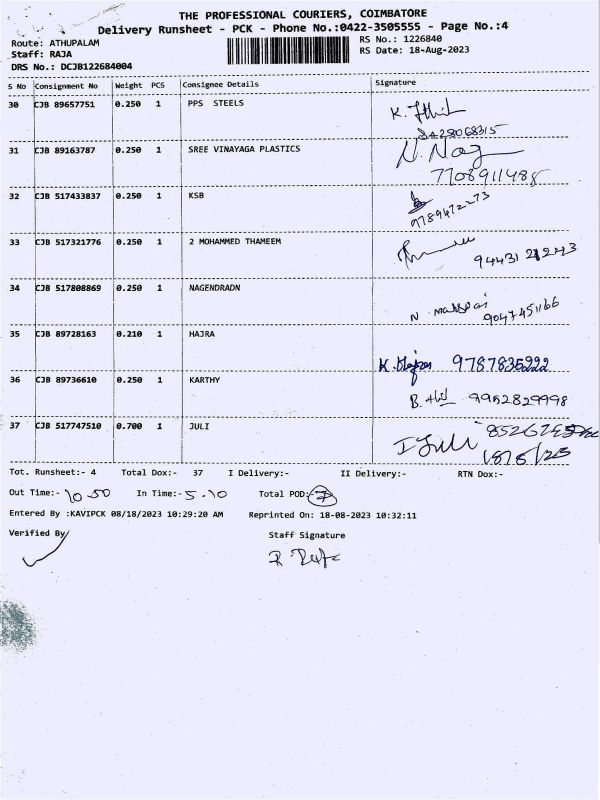 THE PROFESSIONAL COURIERS, COIMBATORE
Delivery Runsheet - PCK - Phone No.:0422-3505555 - Page No.:4
Route: ATHUPALAM RS No.: 1226840
Staff: RAJA RS Date: 18-Aug-2023
DRS No.: DCJB122684004
S No Consignment No Weight PCS Consignee Details Signature
30 CJB 89657751 0.250 1 PPS STEELS
31 CJB 89163787 0.250 1 SREE VINAYAGA PLASTICS
7708911488
32 CJB 517433837 0.250 1 KSB
33 CJB 517321776 0.250 1 2 MOHAMMED THAMEEM
34 CJB 517808869 0.250 1 NAGENDRADN
9047451166
35 CJB 89728163 0.210 1 HAJRA
9787835222
36 CJB 89736610 0.250 1 KARTHY
9952829998
37 CJB 517747510 0.700 1 JULI
I Juli
Tot. Runsheet:- 4 Total Dox:- 37 I Delivery:- II Delivery:- RTN Dox:-
Out Time:- 10.50 In Time:- 5.10 Total POD:- 7
Entered By :KAVIPCK 08/18/2023 10:29:20 AM Reprinted On: 18-08-2023 10:32:11
Verified By Staff Signature